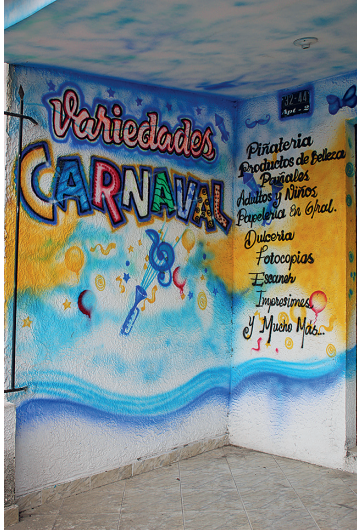 Variedades
CARNAVAL
32-44
Apt - 2
Piñateria
Productos de Belleza
Pañales
Adultos y Niños
Papeleria En Gral.
Dulceria
Fotocopias
Escaner
Impresiones
Y Mucho Más...